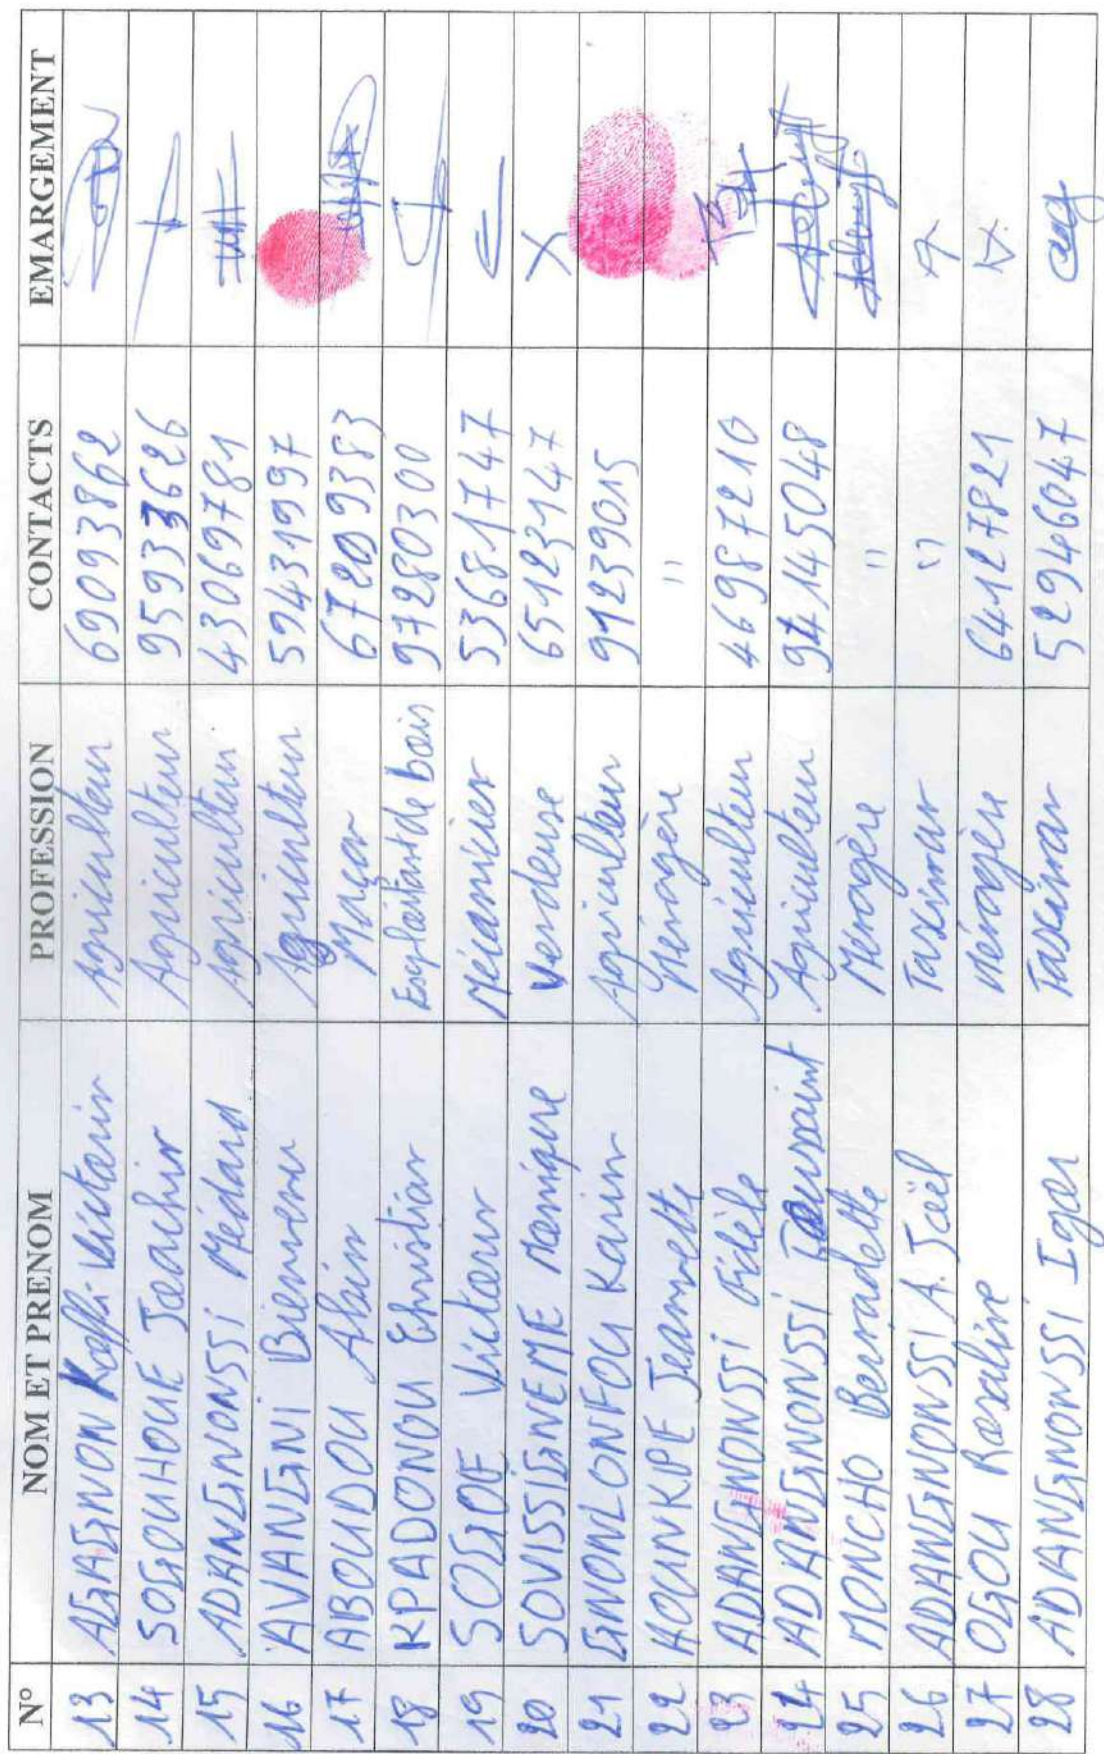 N° NOM ET PRENOM PROFESSION CONTACTS EMARGEMENT
13 AGAGNON Koffi Victorin Agriculteur 69093862
14 SOGOUHOUE Joachin Agriculteur 95933626
15 ADANGNONSSI Médard Agriculteur 43069781
16 AVANGNI Bienvenu Agriculteur 59431997
17 ABOUDOU Alain Maçon 67209383
18 KPADONOU Christian Exploitant de bois 97280300
19 SOGOE Victour Mécanicien 53681747
20 SOVISSIGNEME Monique Vendeuse 65123147
21 GNONLONFOU Karin Agriculteur 91239015
22 HOUNKPE Jeannette Ménagère "
23 ADANGNONSSI Fidèle Agriculteur 46987210
24 ADANGNONSSI Toussaint Agriculteur 94145048
25 MONCHO Bernadette Ménagère "
26 ADANGNONSSI A. Joël Taximan "
27 OGOU Rosaline Ménagère 64127821
28 ADANGNONSSI Igor Taximan 52946047